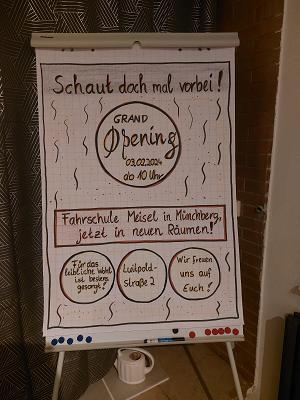 Schaut doch mal vorbei!
GRAND
Opening
03.02.2024
ab 10 Uhr
Fahrschule Meisel in Münchberg,
jetzt in neuen Räumen!
Für das
leibliche Wohl
ist bestens
gesorgt!
Luitpold-
straße 2
Wir freuen
uns auf
Euch!